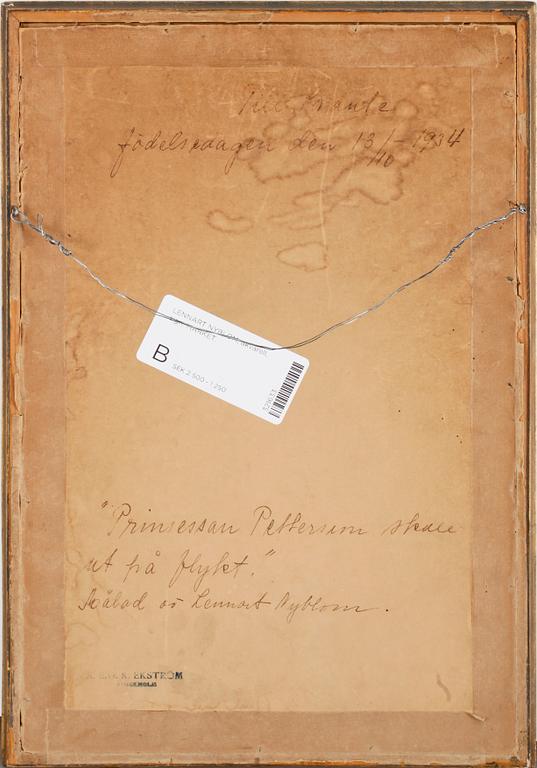 Till
födelsedagen den 13/10 - 1934
LENNART NYBLOM, akvarell,
B
SEK 2 500 - 1 250
"Prinsessan Pettersson skall
ut på flykt."
Målad av Lennart Nyblom.
EKSTRÖM
STOCKHOLM